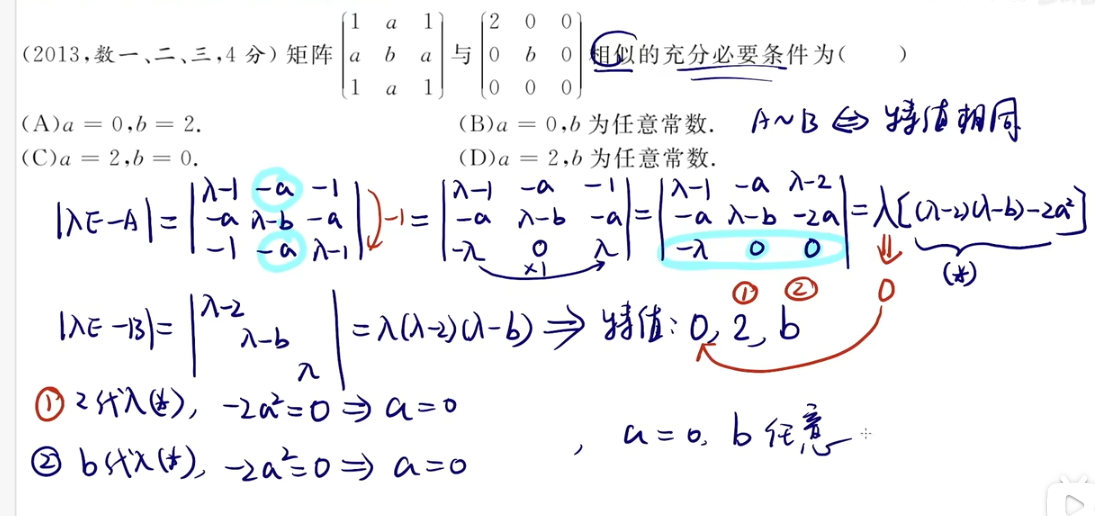 (2013,数一、二、三,4分)矩阵 [1 a 1; a b a; 1 a 1] 与 [2 0 0; 0 b 0; 0 0 0] 相似的充分必要条件为( )
(A)a = 0,b = 2. (B)a = 0,b 为任意常数.
(C)a = 2,b = 0. (D)a = 2,b 为任意常数.
A~B ⇔ 特值相同
|λE-A| = |λ-1 -a -1; -a λ-b -a; -1 -a λ-1| -1 = |λ-1 -a -1; -a λ-b -a; -λ 0 λ| ×1 = |λ-1 -a λ-2; -a λ-b -2a; -λ 0 0| = λ[(λ-2)(λ-b)-2a²]
⇓ 0 (*)
① ②
|λE-B| = |λ-2 λ-b λ| = λ(λ-2)(λ-b) ⇒ 特值: 0, 2, b
① 2代入(*), -2a²=0 ⇒ a=0
② b代入(*), -2a²=0 ⇒ a=0
, a=0, b任意